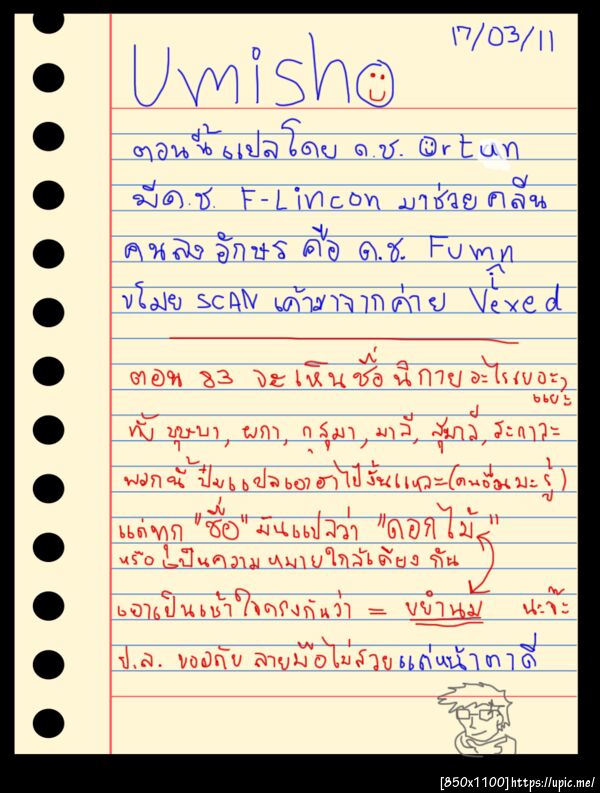 17/03/11
Umisho
ตอนนี้แปลโดย ด.ช. Ortun
มีด.ช. F-Lincon มาช่วย คลีน
คนลงอักษร คือ ด.ช. Fumn
ขโมย SCAN เค้ามาจากค่าย Vexed
ตอน 83 จะเห็นชื่อนิกายอะไรเยอะ
แยะ
ทั้ง บุษบา, ผกา, กุสุมา, มาลี, สุมาลี,
พวกนี้ ปั๋มแปลเอาฮาไปงั้นแหละ (คนอื่นมะรู้)
แต่ทุก "ชื่อ" มันแปลว่า "ดอกไม้"
หรือ เป็นความหมายใกล้เคียงกัน
เอาเป็นเข้าใจตรงกันว่า = ขยำนม นะจ๊ะ
ป.ล. ขออภัย ลายมือไม่สวยแต่หน้าตาดี
[850x1100]https://upic.me/